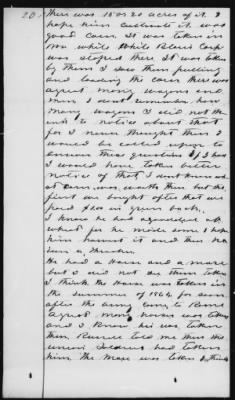 20.
there was 15 or 20 acres of it. I
hope him cultivate it. was
good corn. It was taken in
now while While Blairs Corp
was stopped there It was taken
by them I saw them pulling
and loading the corn there was
a great many wagons and
men I dont remember how
many wagons I did not tho
it to notice about that
for I never thought then I
would be called upon to
answer these questions If I had
I would have taken better
notice of that I dont know what
corn was worth then but the
first we bought after that we
paid $ in green back.
I know he had a good of
wheat for he made some I hope
him harvest it and then he
a thrasher.
He had a Horse and a mare
but I did not see them taken
I think the Horse was taken in
the summer of 1864 for soon
after the army come to Rome
A great many horses was taken
and I know his was taken
then. Russell told me then the
union Soldiers had taken
him The Mare was taken I think